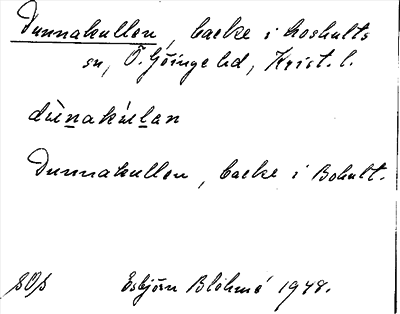 Dunnakullen, backe i Loshults
sn, Ö. Göinge hd, Krist. l.
dùnakúlan
Dunnakullen, backe i Bohult.
Esbjörn Blöhmé 1948.